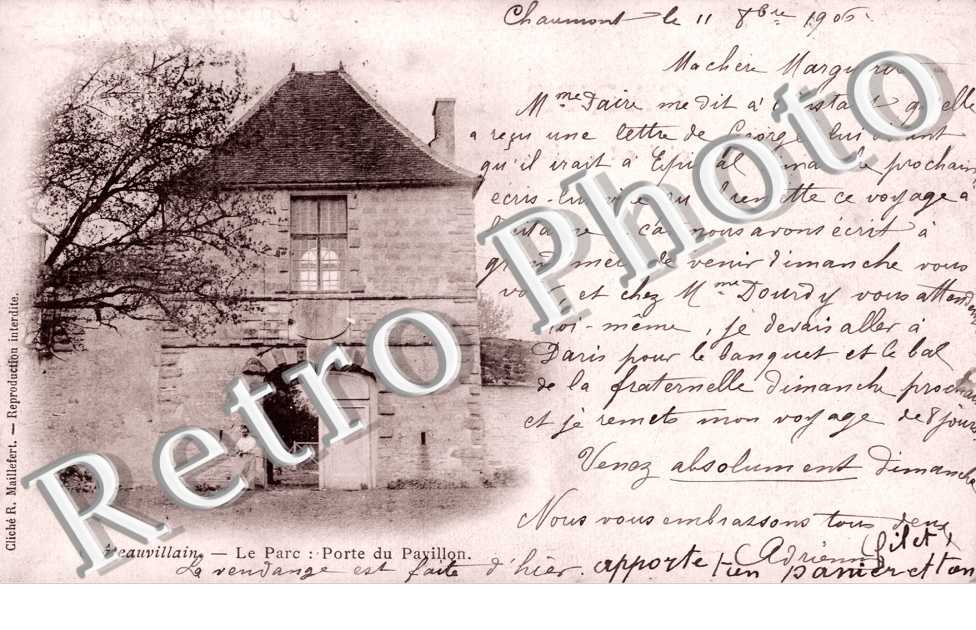 Chaumont le 11 8bre 1906
Ma chère Marguerite
Mme Daire me dit à l'instant qu'elle
a reçu une lettre de George lui disant
qu'il irait à Epinal dimanche prochain
écris-lui qu'il remette ce voyage à
car nous avons écrit à
de venir dimanche vous
et chez Mme Dourdy vous attend
moi-même, je devais aller à
Paris pour le banquet et le bal
de la fraternelle dimanche prochain
et je remets mon voyage de 8 jours
Venez absolument dimanche
Nous vous embrassons tous deux
Adrienne
apporte ton panier et ton filet
La vendange est faite d'hier.
Cliché R. Maillefert. — Reproduction interdite.
Châteauvillain. — Le Parc : Porte du Pavillon.
Retro Photo
Retro Photo